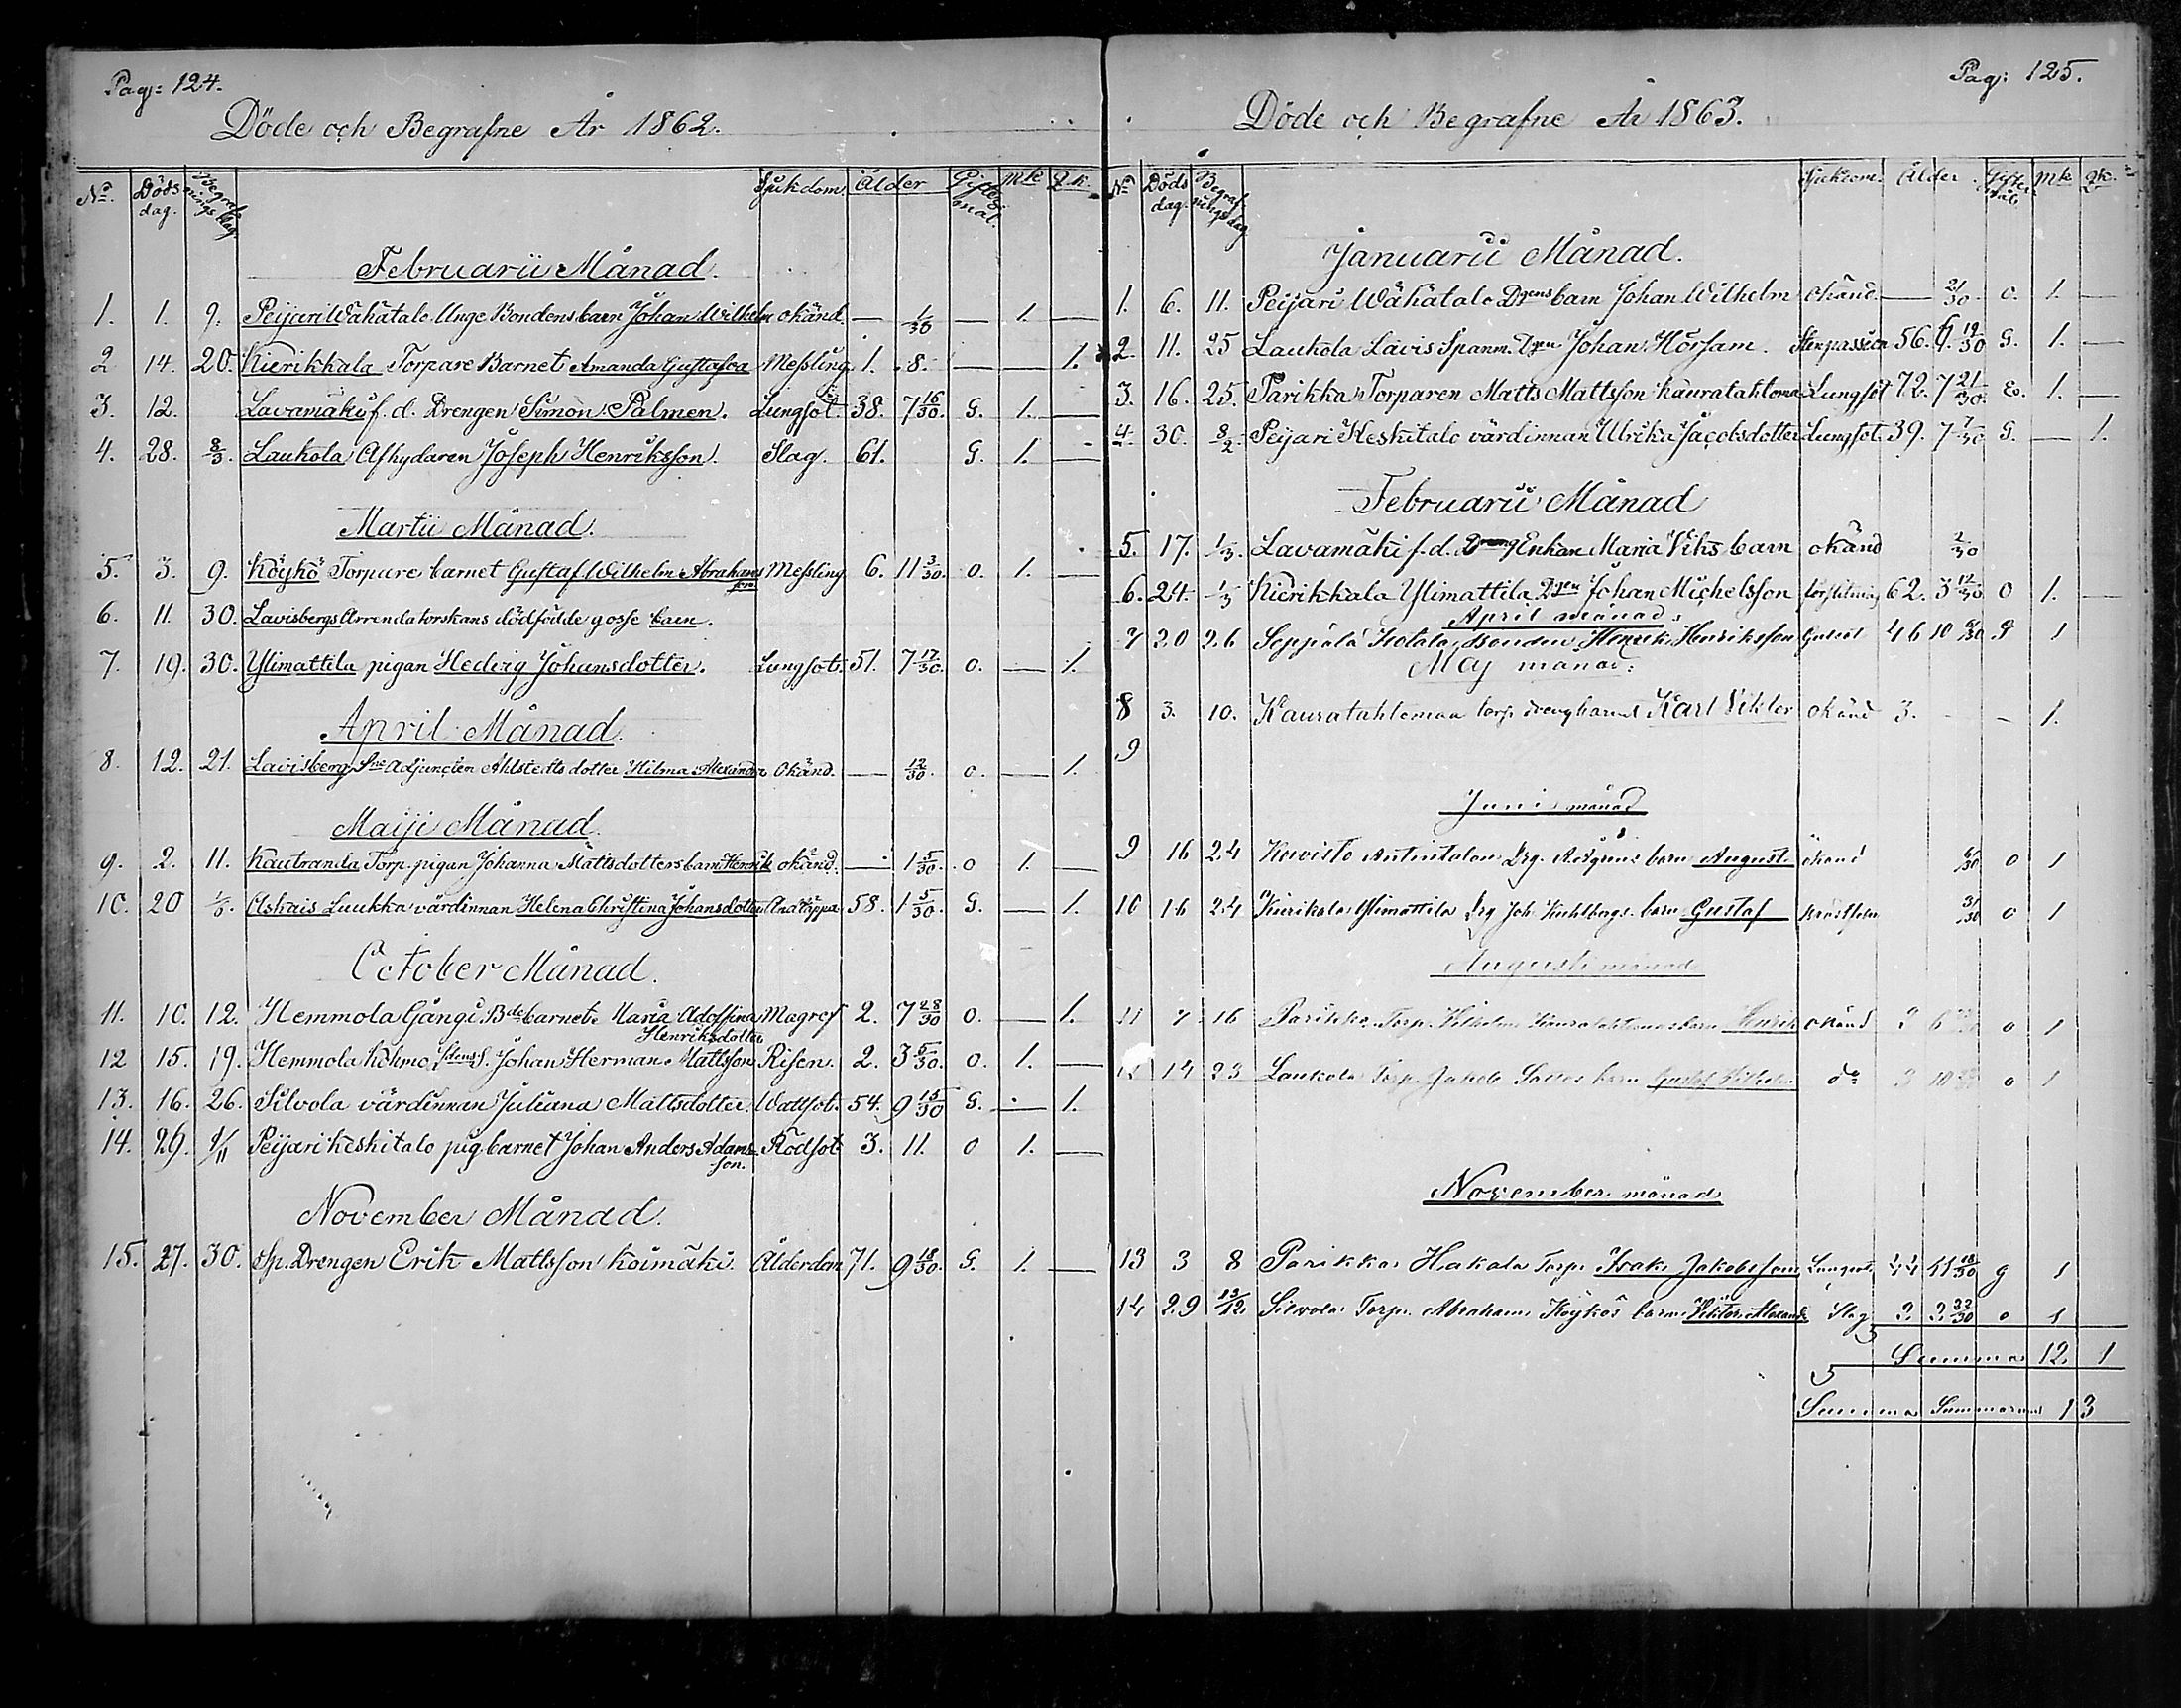 Pag: 124.
Döde och Begrafne År 1862.
No. Döds dag. Begrafnings dag. Sjukdom. Ålder Giftermål. Mk. Qk.
Februarii Månad.
1. 1. 9. Peijari Wähätalo Unge Bondens barn Johan Wilhelm okänd. — 1/30 — 1. —
2 14. 20. Kierikkala Torpare Barnet Amanda Gustafva Meßling 1. 8. — — 1.
3. 12. Lavamäki f. d. Drengen Simon Palmen. Lungsot. 38. 7 16/30. G. 1. —
4. 28. 8/3. Laukola Afskydaren Joseph Henriksson. Slag. 61. G. 1. —
Martii Månad.
5. 3. 9. Köykö Torpare barnet Gustaf Wilhelm Abrahamsson Meßling 6. 11 3/30. o. 1. —
6. 11. 30. Lavisbergs Arrendatorskans dödfödde gosse barn.
7. 19. 30. Ylimattila pigan Hedvig Johansdotter. Lungsot. 51. 7 17/30. o. — 1.
April Månad.
8. 12. 21. Lavisberg Sne Adjuncten Ahlstedts dotter Hilma Alexandra Okänd. — 12/30. o. — 1.
Maiji Månad.
9. 2. 11. Kautranda Torp. pigan Johanna Mattsdotters barn Henrik okänd. — 1 5/30. o 1. —
10. 20 1/6. Askais Luukka värdinnan Helena Christina Johansdotter Andtäppa 58. 1 5/30. G. — 1.
October Månad.
11. 10. 12. Hemmola Gångi Bde barnet Maria Adolfina Henriksdotter Magref 2. 7 28/30 o. — 1.
12 15. 19. Hemmola Kohmo S. Johan Herman Mattsson Risen. 2. 3 5/30. o. 1. —
13. 16. 26. Silvola värdinnan Juliana Mattsdotter. Wattsot. 54. 9 15/30 G. — 1.
14. 29. 9/11 Peijari Keskitalo pig. barnet Johan Anders Adamsson. Rödsot 3. 11. o 1. —
November Månad.
15. 27. 30. Sp. Drengen Erik Mattsson Koimäki. Ålderdom 71. 9 18/30. G. 1. —
Pag: 125.
Döde och Begrafne År 1863.
No Döds dag. Begrafnings dag Sjukdom. Ålder. Giftermål. Mk Qk.
Januarii Månad.
1. 6. 11. Peijari Wähätalo Dgens barn Johan Wilhelm okänd. — 21/30. o. 1. —
2. 11. 25 Laukola Lavis Spanm. Dgen Johan Hörsam. Stenpassion 56. 6. 19/30 G. 1. —
3. 16. 25. Parikka Torparen Matts Mattsson Kauratahtoma Lungsot 72. 7 21/30. E. 1. —
4. 30. 8/2. Peijari Keskitalo värdinnan Ulrika Jacobsdotter Lungsot. 39. 7 7/30 G. — 1.
Februarii Månad
5. 17. 1/3. Lavamäki f. d. Dreng Enkan Maria Viks barn okänd 2/30
6. 24. 1/3 Kierikkala Ylimattila Dgen Johan Michelsson förstelning 62. 3 12/30 o 1. —
April månad.
7 20 26 Seppälä Hotala Bonden Henrik Henriksson Gulsot 46 10 9/30 g 1
Maj månad.
8 3. 10. Kauratahtomaa torp. drengbarnet Karl Viktor okänd 3. - - 1.
9
Juni månad
9 16 24 Koivisto Antintalon Drg. barn August okänd o 1
10 16 24 Kierikala Ylimattila drg Joh. Kuhlbergs barn Gustaf Kräfthm 21/30 o 1
Augusti månad
11 7 16 Parikka Torp. Wilhelm Kauratahtomas barn Henrik okänd 2 6 o 1
12 14 23 Laukola Torp. Jakob barn Gustaf Wilhelm do 3 10 o 1
November månad
13 3 8 Parikka Hakala Torp. Isak Jakobsson Lungsot 44 11 18/30 g 1
14 29 13/12 Silvola Torp. Abraham Köykös barn Viktor Alexander Slag 2 2 22/30 o 1
Summa 12 1
Summa Summarum 13